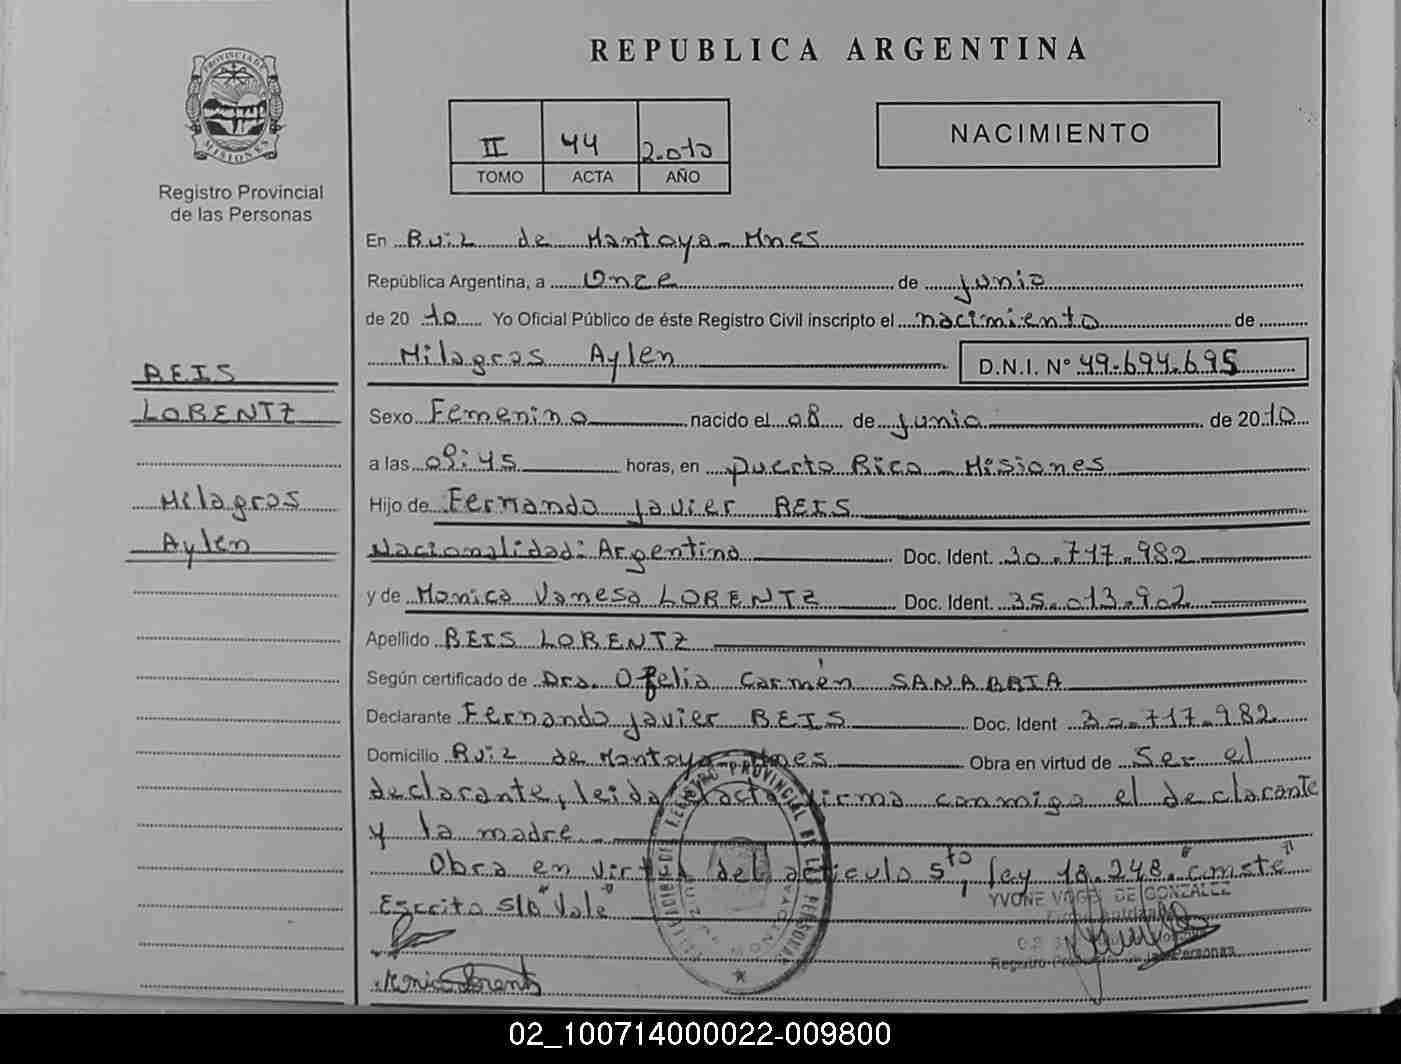 PROVINCIA DE
MISIONES
Registro Provincial
de las Personas
REIS
LORENTZ
Milagros
Aylen
REPUBLICA ARGENTINA
II 44 2.010
TOMO ACTA AÑO
NACIMIENTO
En Ruiz de Montoya - Mnes
República Argentina, a Once de junio
de 20 10 Yo Oficial Público de éste Registro Civil inscripto el nacimiento de
Milagros Aylen D.N.I. Nº 49.694.695
Sexo Femenino nacido el 08 de junio de 2010
a las 09:45 horas, en Puerto Rico - Misiones
Hijo de Fernando Javier REIS
Nacionalidad: Argentina Doc. Ident. 30.717.982
y de Monica Vanesa LORENTZ Doc. Ident. 35.013.902
Apellido REIS LORENTZ
Según certificado de Dra. Ofelia Carmén SANABRIA
Declarante Fernando Javier REIS Doc. Ident 30.717.982
Domicilio Ruiz de Montoya - Mnes Obra en virtud de Ser el
declarante, leida el acta firma conmigo el declarante
y la madre.
Obra en virtud del articulo 5to, ley 18.248. "cmste"
Escrito s/b "Vale"
REGISTRO PROVINCIAL DE LAS PERSONAS
YVONE DE GONZALEZ
Registro de las Personas
02_100714000022-009800